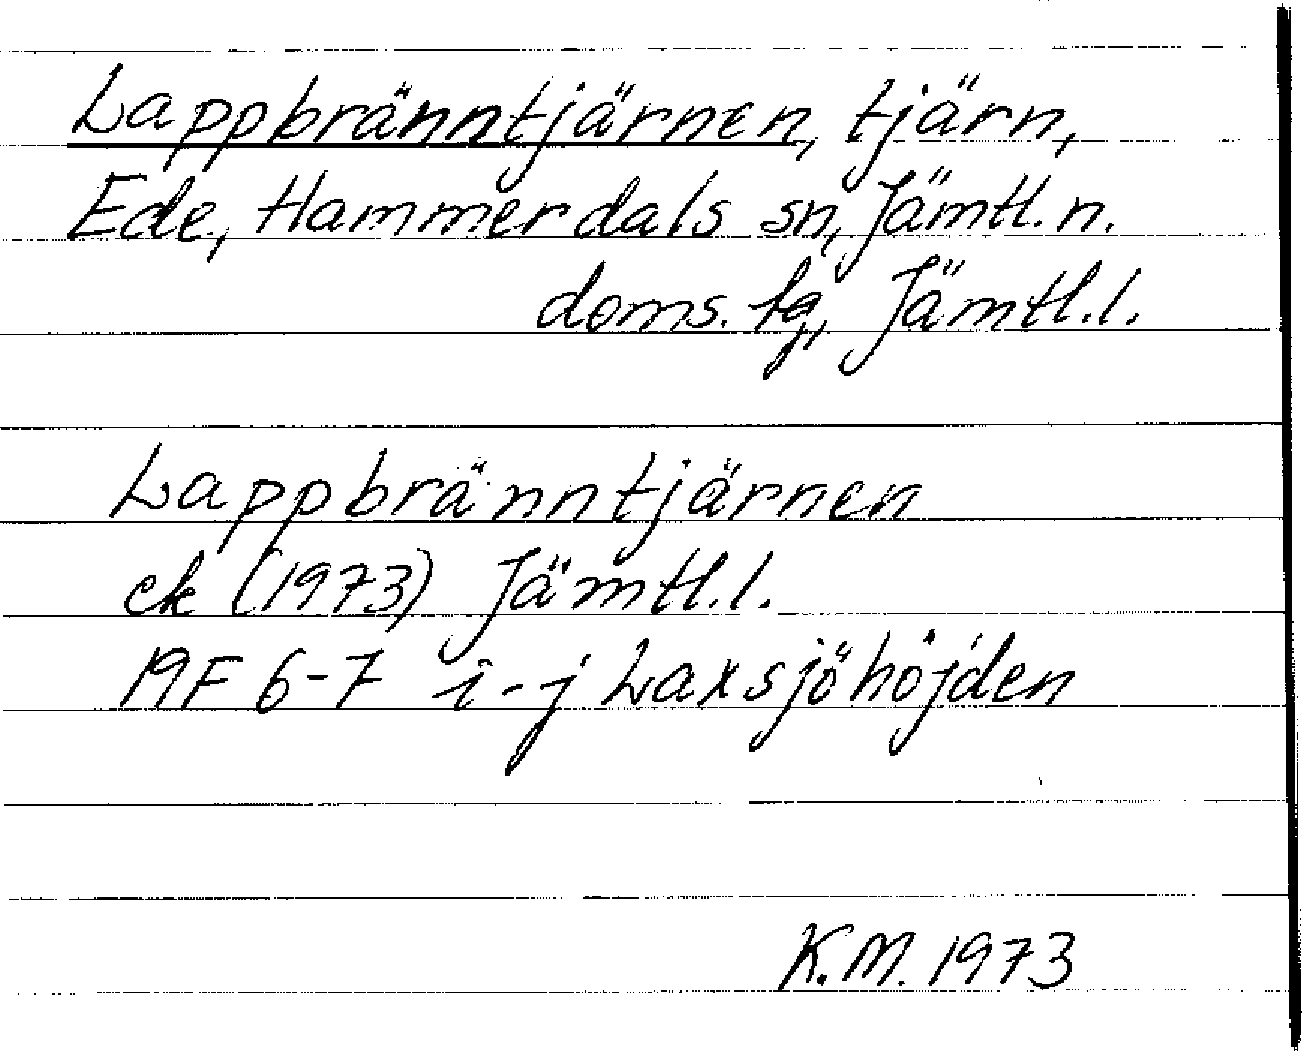 Lappbränntjärnen, tjärn,
Ede, Hammerdals sn, Jämtl. n.
doms. tg, Jämtl. l.
Lappbränntjärnen
ek (1973) Jämtl. l.
19F 6-7 i-j Laxsjöhöjden
K.M. 1973